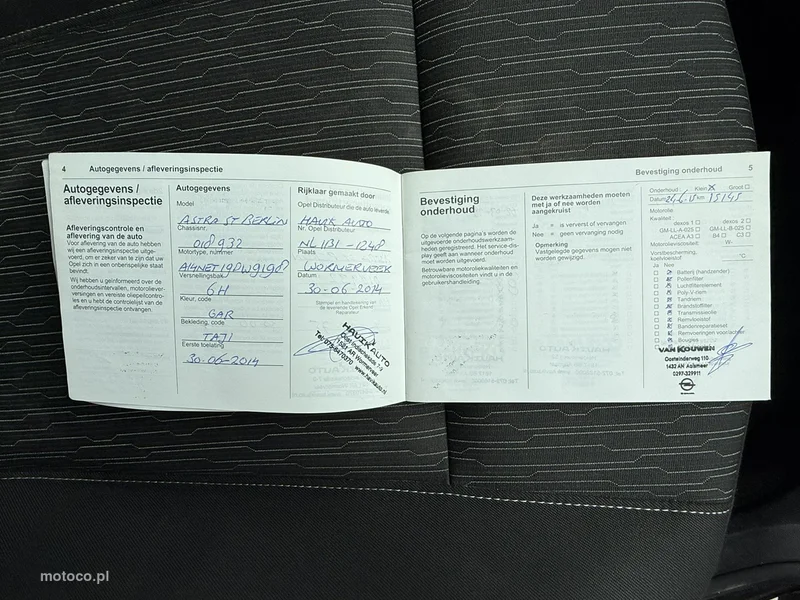 4 Autogegevens / afleveringsinspectie
Autogegevens /
afleveringsinspectie
Afleveringscontrole en
aflevering van de auto
Voor aflevering van de auto hebben
wij een afleveringsinspectie uitge-
voerd, om er zeker van te zijn dat uw
Opel zich in een onberispelijke staat
bevindt.
Wij hebben u geïnformeerd over de
onderhoudsintervallen, motorolie-
verversingen en vereiste oliepeilcontro-
les en u hebt de controlelijst van de
afleveringsinspectie ontvangen.
Autogegevens
Model
ASTRA ST BERLIN
Chassisnr.
018932
Motortype, nummer
A14NET19DW9198
Versnellingsbak
6H
Kleur, code
GAR
Bekleding, code
TAJI
Eerste toelating
30-06-2014
Rijklaar gemaakt door
Opel Distributeur die de auto leverde
HAVIK AUTO
Nr. Opel Distributeur
NL 1131 - 1248
Plaats
WORMERVEER
Datum
30-06-2014
Stempel en handtekening van
de leverende Opel Erkend
Reparateur
HAVIK AUTO
www.havikauto.nl
Bevestiging onderhoud 5
Bevestiging
onderhoud
Op de volgende pagina's worden de
uitgevoerde onderhoudswerkzaam-
heden geregistreerd. Het service-dis-
play geeft aan wanneer onderhoud
moet worden uitgevoerd.
Betrouwbare motoroliekwaliteiten en
motorolieviscositeiten vindt u in de
gebruikershandleiding.
Deze werkzaamheden moeten
met ja of nee worden
aangekruist
Ja = is ververst of vervangen
Nee = geen vervanging nodig
Opmerking
Vastgelegde gegevens mogen niet
worden gewijzigd.
Onderhoud: Klein X Groot
Datum km 15145
Motorolie
Kwaliteit
dexos 1 dexos 2
GM-LL-A-025 GM-LL-B-025
ACEA A3 B4 C3
Motorolieviscositeit: W-
Vorstbescherming,
koelvloeistof: °C
Ja Nee
Batterij (handzender)
Pollenfilter
Luchtfilterelement
Poly-V-riem
Tandriem
Brandstoffilter
Transmissieolie
Remvloeistof
Bandenreparatieset
Remvoeringen voor/achter
Bougies
VAN KOUWEN
Oosteinderweg 110
1432 AN Aalsmeer
0297-329911
motoco.pl